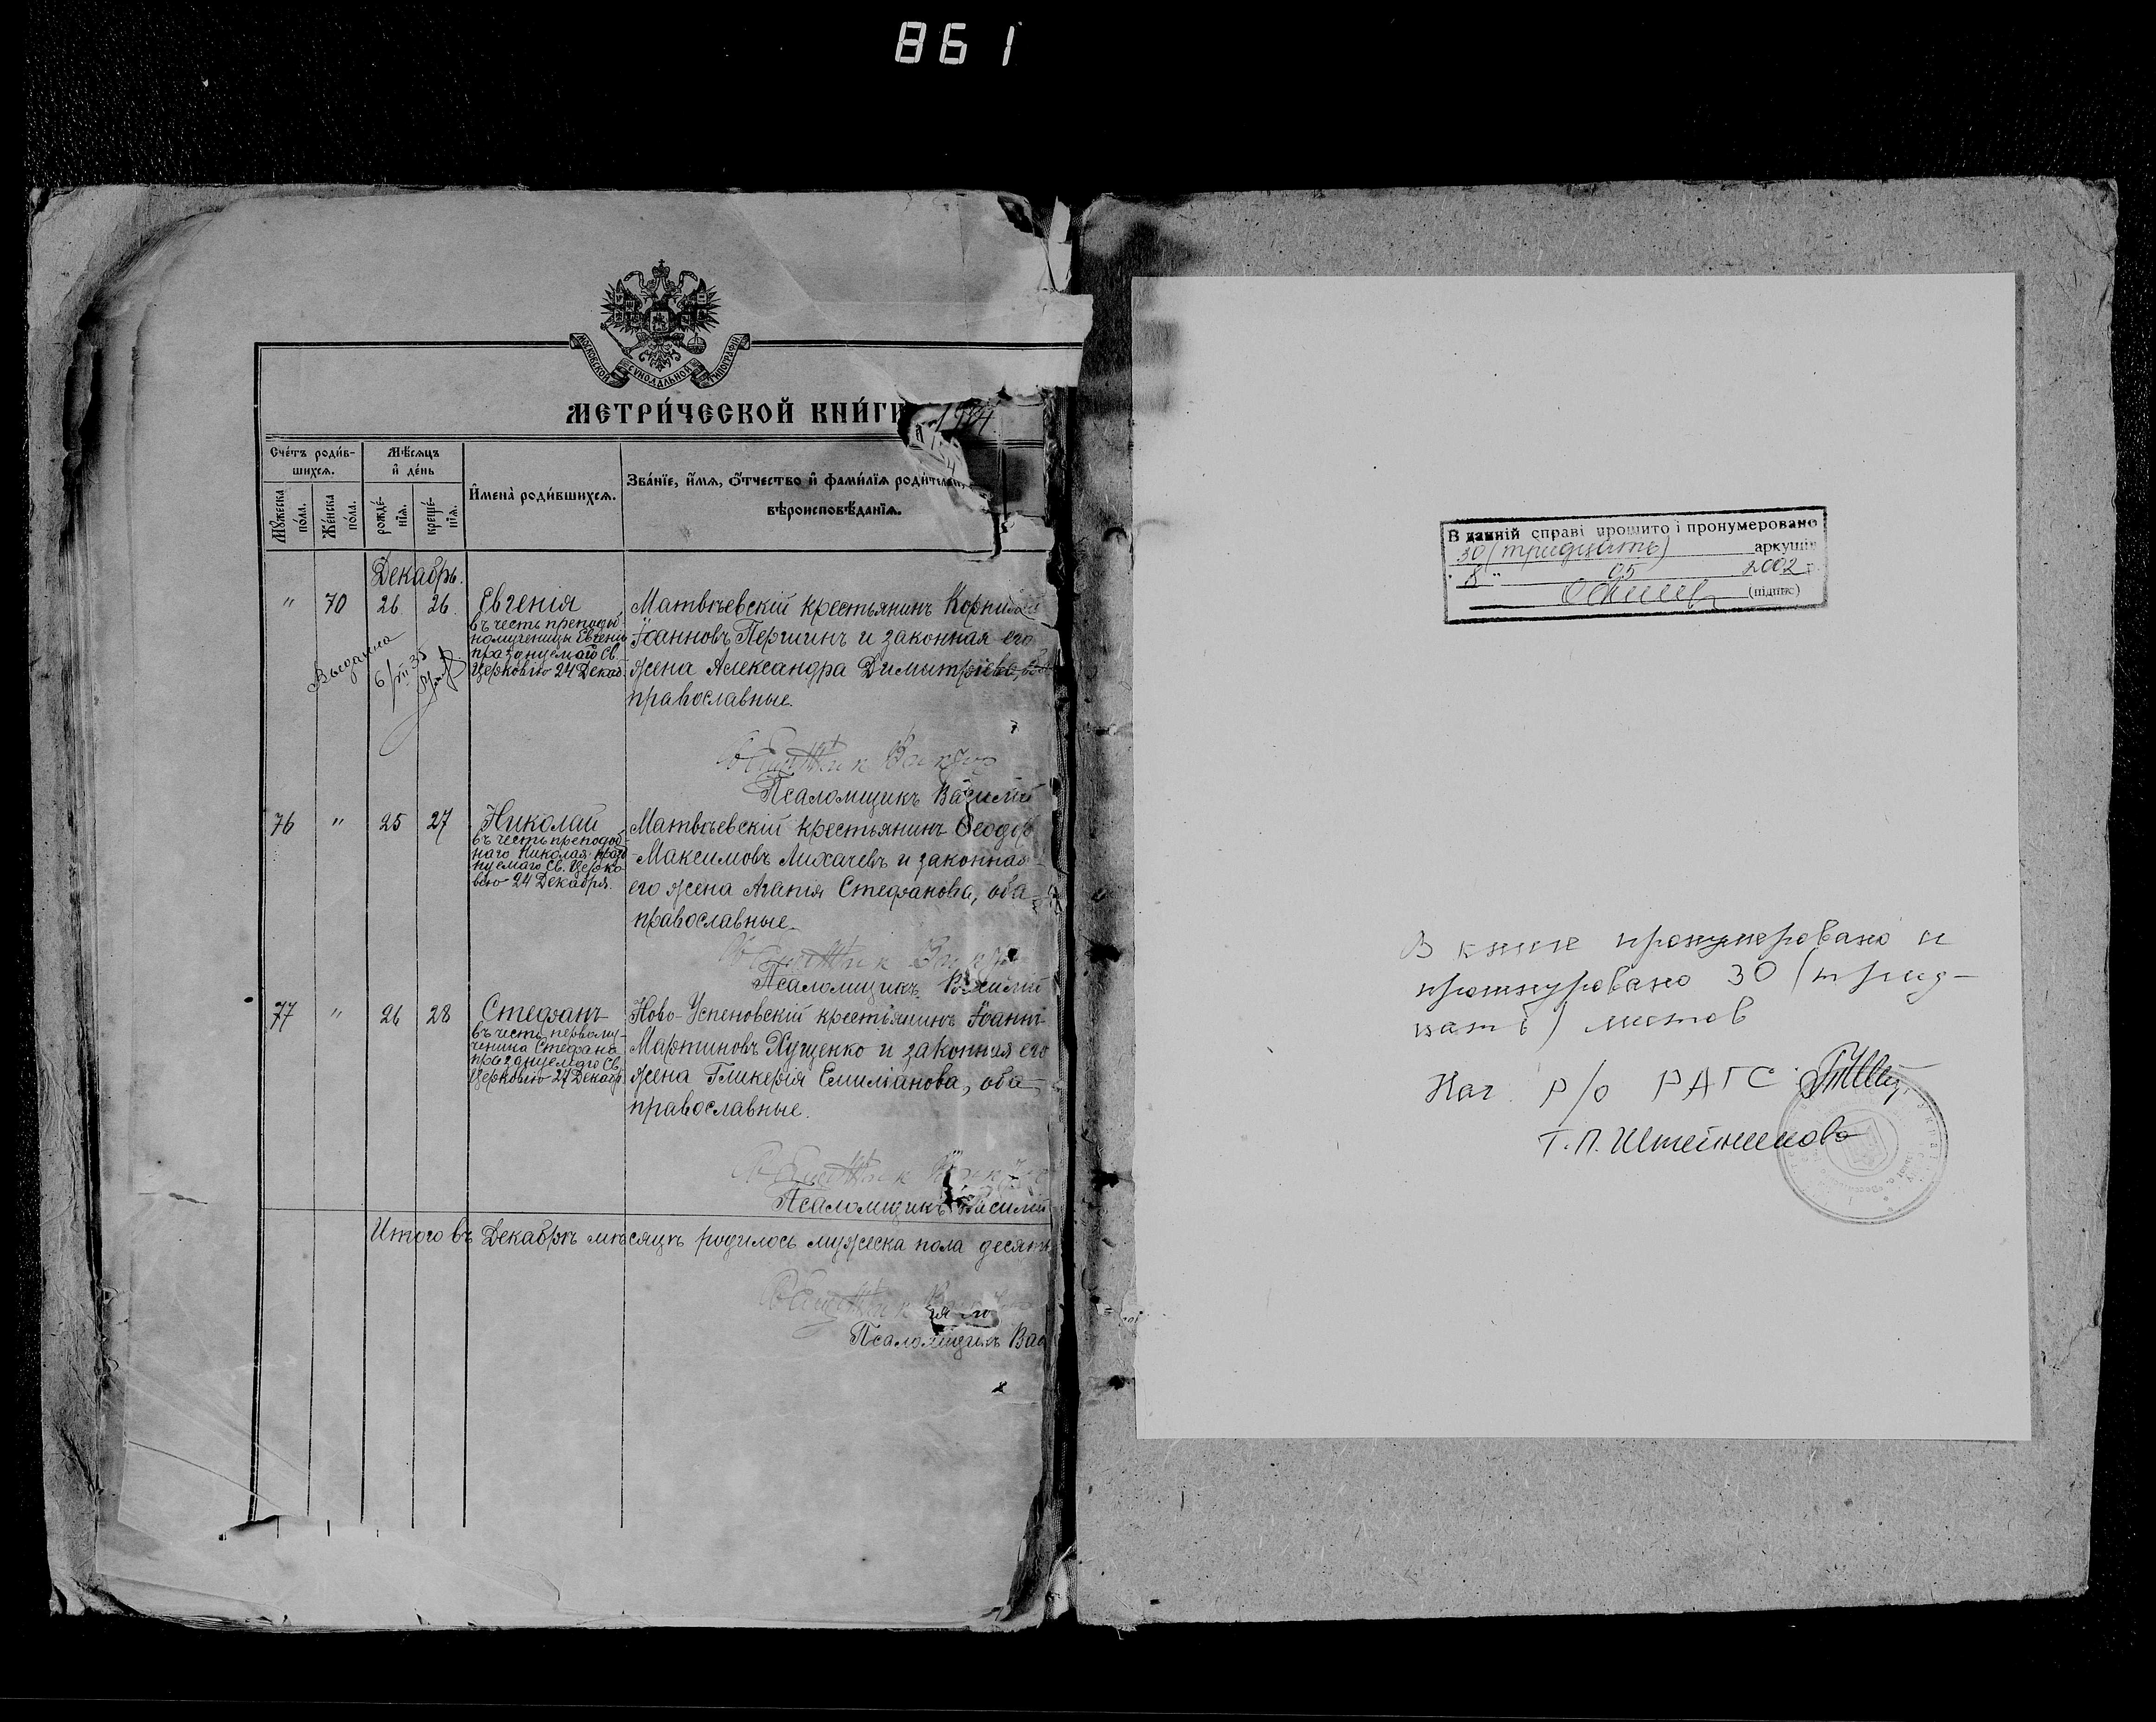 861
МОСКОВСКОЙ СУНОДАЛЬНОЙ ТИПОГРАФІИ
МЕТРИ́ЧЕСКОЙ КНИ́ГИ
Сче́тъ роди́в-
шихсѧ.
Мѣ́сѧцъ
и҆ де́нь
И҆мена̀ роди́вшихсѧ.
Зва́нїе, и҆́мѧ, ѻ҆́тчество и҆ фами́лїѧ роди́телей,
вѣроисповѣ́данїѧ.
Мꙋ́жеска
по́ла.
Же́нска
по́ла.
рожде́-
нїѧ.
креще́-
нїѧ.
Декабрь.
" 70 26 26. Евгенія
въ честь преподоб-
номученицы Евгеніи
празднуемаго Св.
Церковію 24 Декаб.
Матвѣевскій крестьянинъ Корнилій
Іоанновъ Першинъ и законная его
жена Александра Димитріева,
православные.
Выдана
6/VII 35
Псаломщикъ Василій
76 " 25 27 Николай
въ честь преподоб-
наго Николая празд
нуемаго Св. Церко
вію 24 Декабря.
Матвѣевскій крестьянинъ Ѳеодоръ
Максимовъ Лихачевъ и законная
его жена Агапія Стефанова, оба
православные.
Псаломщикъ Василій
77 " 26 28 Стефанъ
въ честь первому-
ченика Стефана
празднуемаго Св.
Церковію 27 Декабр.
Ново-Успеновскій крестьянинъ Іоаннъ
Мартиновъ Луценко и законная его
жена Гликерія Емиліанова, оба
православные.
Псаломщикъ Василій
Итого въ Декабрѣ мѣсяцѣ родилось мужеска пола десять
Псаломщикъ Вас
В даній справі прошито і пронумеровано
30 (тридцать) аркушів
" 8 " 05 2002 г.
(підпис)
В книге пронумеровано и
прошнуровано 30 (трид-
цать) листов
Нач. р/о РАГС
Т.П.